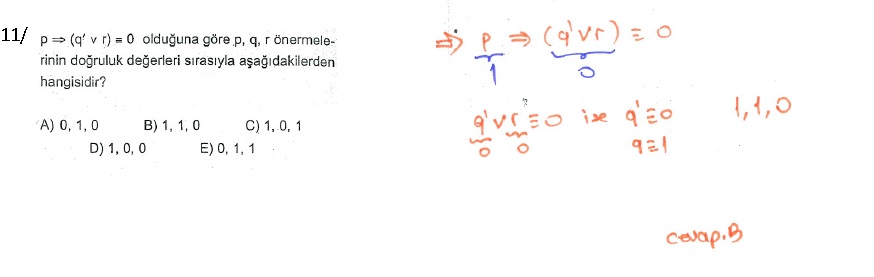 11/ p ⇒ (q' v r) ≡ 0 olduğuna göre p, q, r önermele-
rinin doğruluk değerleri sırasıyla aşağıdakilerden
hangisidir?
A) 0, 1, 0 B) 1, 1, 0 C) 1, 0, 1
D) 1, 0, 0 E) 0, 1, 1
⇒ p ⇒ (q' v r) ≡ 0
1 0
q' v r ≡ 0 ise q' ≡ 0 1, 1, 0
0 0 q ≡ 1
cevap. B